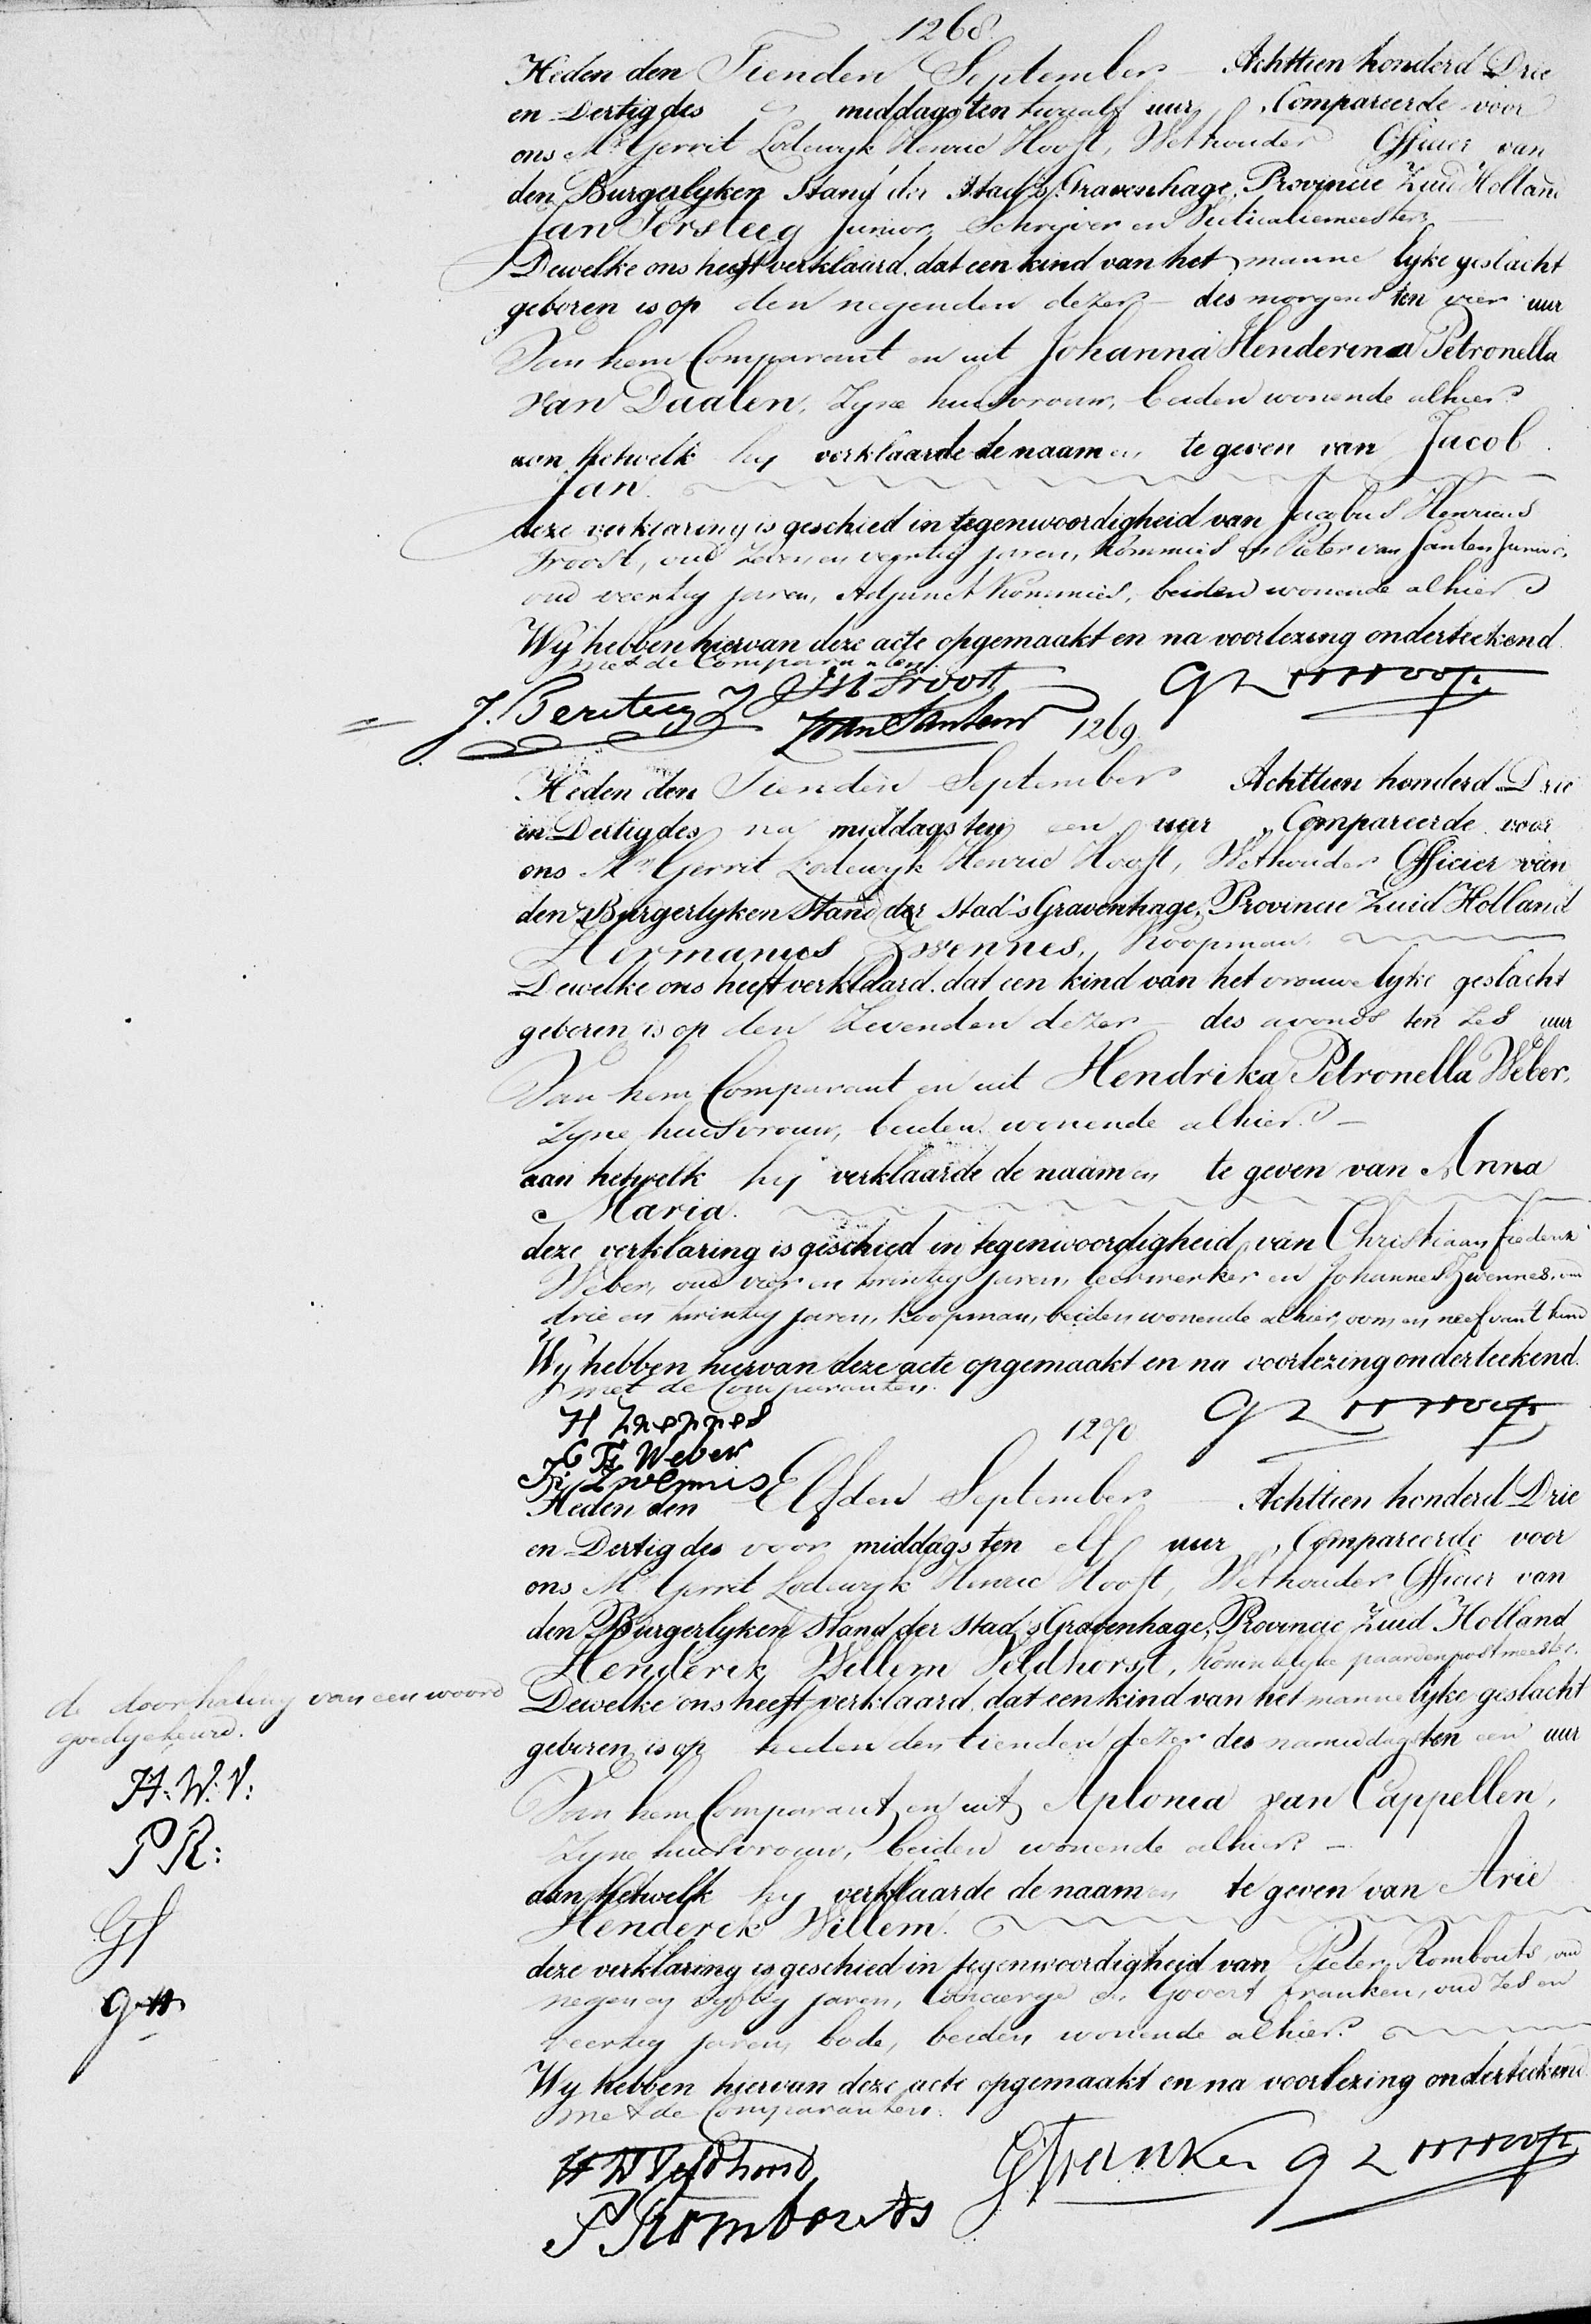 1268.
Heden den Tienden September Achttien honderd Drie
en Dertig des middags ten twaalf uur, Compareerde voor
ons Mr Gerrit Lodewyk Henric Hooft, Wethouder Officier van
den Burgerlyken Stand der Stad 's Gravenhage, Provincie Zuid Holland
Jan Junior, Schryver en
Dewelke ons heeft verklaard, dat een kind van het mannelyke geslacht
geboren is op den negenden dezer des morgens ten vier uur
Van hem Comparant en uit Johanna Henderina Petronella
van Daalen, Zyne huisvrouw, beiden wonende alhier.
aan hetwelk hy verklaarde de naamen te geven van Jacob
Jan.
deze verklaring is geschied in tegenwoordigheid van Jacobus Henricus
Troost, oud zeven en veertig jaren, Kommies en Pieter van Santen Junior,
oud veertig jaren, Adjunct Kommies, beiden wonende alhier
Wij hebben hiervan deze acte opgemaakt en na voorlezing onderteekend.
met de Comparanten
J. JH Troost G L H Hooft
P van Santen Jr 1269.
Heden den Tienden September Achttien honderd Drie
en Dertig des na middags ten een uur, Compareerde voor
ons Mr Gerrit Lodewyk Henric Hooft, Wethouder Officier van
den Burgerlyken Stand der Stad 's Gravenhage, Provincie Zuid Holland
Hermanus Zwennes, Koopman.
Dewelke ons heeft verklaard, dat een kind van het vrouwelyke geslacht
geboren is op den Zevenden dezer des avonds ten zes uur
Van hem Comparant en uit Hendrika Petronella Weber,
Zyne huisvrouw, beiden wonende alhier.
aan hetwelk hy verklaarde de naamen te geven van Anna
Maria.
deze verklaring is geschied in tegenwoordigheid van Christiaan Frederik
Weber, oud vier en twintig jaren, leerwerker en Johannes Zwennes, oud
drie en twintig jaren, Koopman, beiden wonende alhier, oom en neef van 't kind
Wij hebben hiervan deze acte opgemaakt en na voorlezing onderteekend.
met de Comparanten.
H Zwennes G L H Hooft
1270
C F Weber
J Zwennis
Heden den Elfden September Achttien honderd Drie
en Dertig des voor middags ten elf uur, Compareerde voor
ons Mr Gerrit Lodewyk Henric Hooft, Wethouder Officier van
den Burgerlyken Stand der Stad 's Gravenhage, Provincie Zuid Holland
Henderik Willem Veldhorst, Koninklyke paardenpostmeester.
Dewelke ons heeft verklaard, dat een kind van het mannelyke geslacht
geboren is op heden den tienden dezer des namiddags ten een uur
Van hem Comparant en uit Aplonia van Cappellen,
Zyne huisvrouw, beiden wonende alhier.
aan hetwelk hy verklaarde de naamen te geven van Arie
Henderik Willem.
deze verklaring is geschied in tegenwoordigheid van Pieter Rombouts, oud
negen en vyftig jaren, Concierge en Govert Franken, oud zes en
veertig jaren, bode, beiden wonende alhier.
Wy hebben hiervan deze acte opgemaakt en na voorlezing onderteekend
met de Comparanten.
H W Veldhorst G Franken G L H Hooft
P Rombouts
de doorhaling van een woord
goedgekeurd.
H. W. V:
P R:
GF
GH